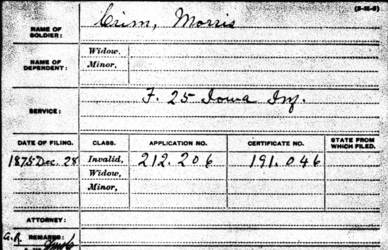 (3-M-5)
NAME OF SOLDIER: Crim, Morris
NAME OF DEPENDENT: Widow,
Minor,
SERVICE: F. 25 Iowa Inf.
DATE OF FILING. CLASS. APPLICATION NO. CERTIFICATE NO. STATE FROM WHICH FILED.
1875 Dec. 28 Invalid, 212.206 191.046
Widow,
Minor,
ATTORNEY:
REMARKS: